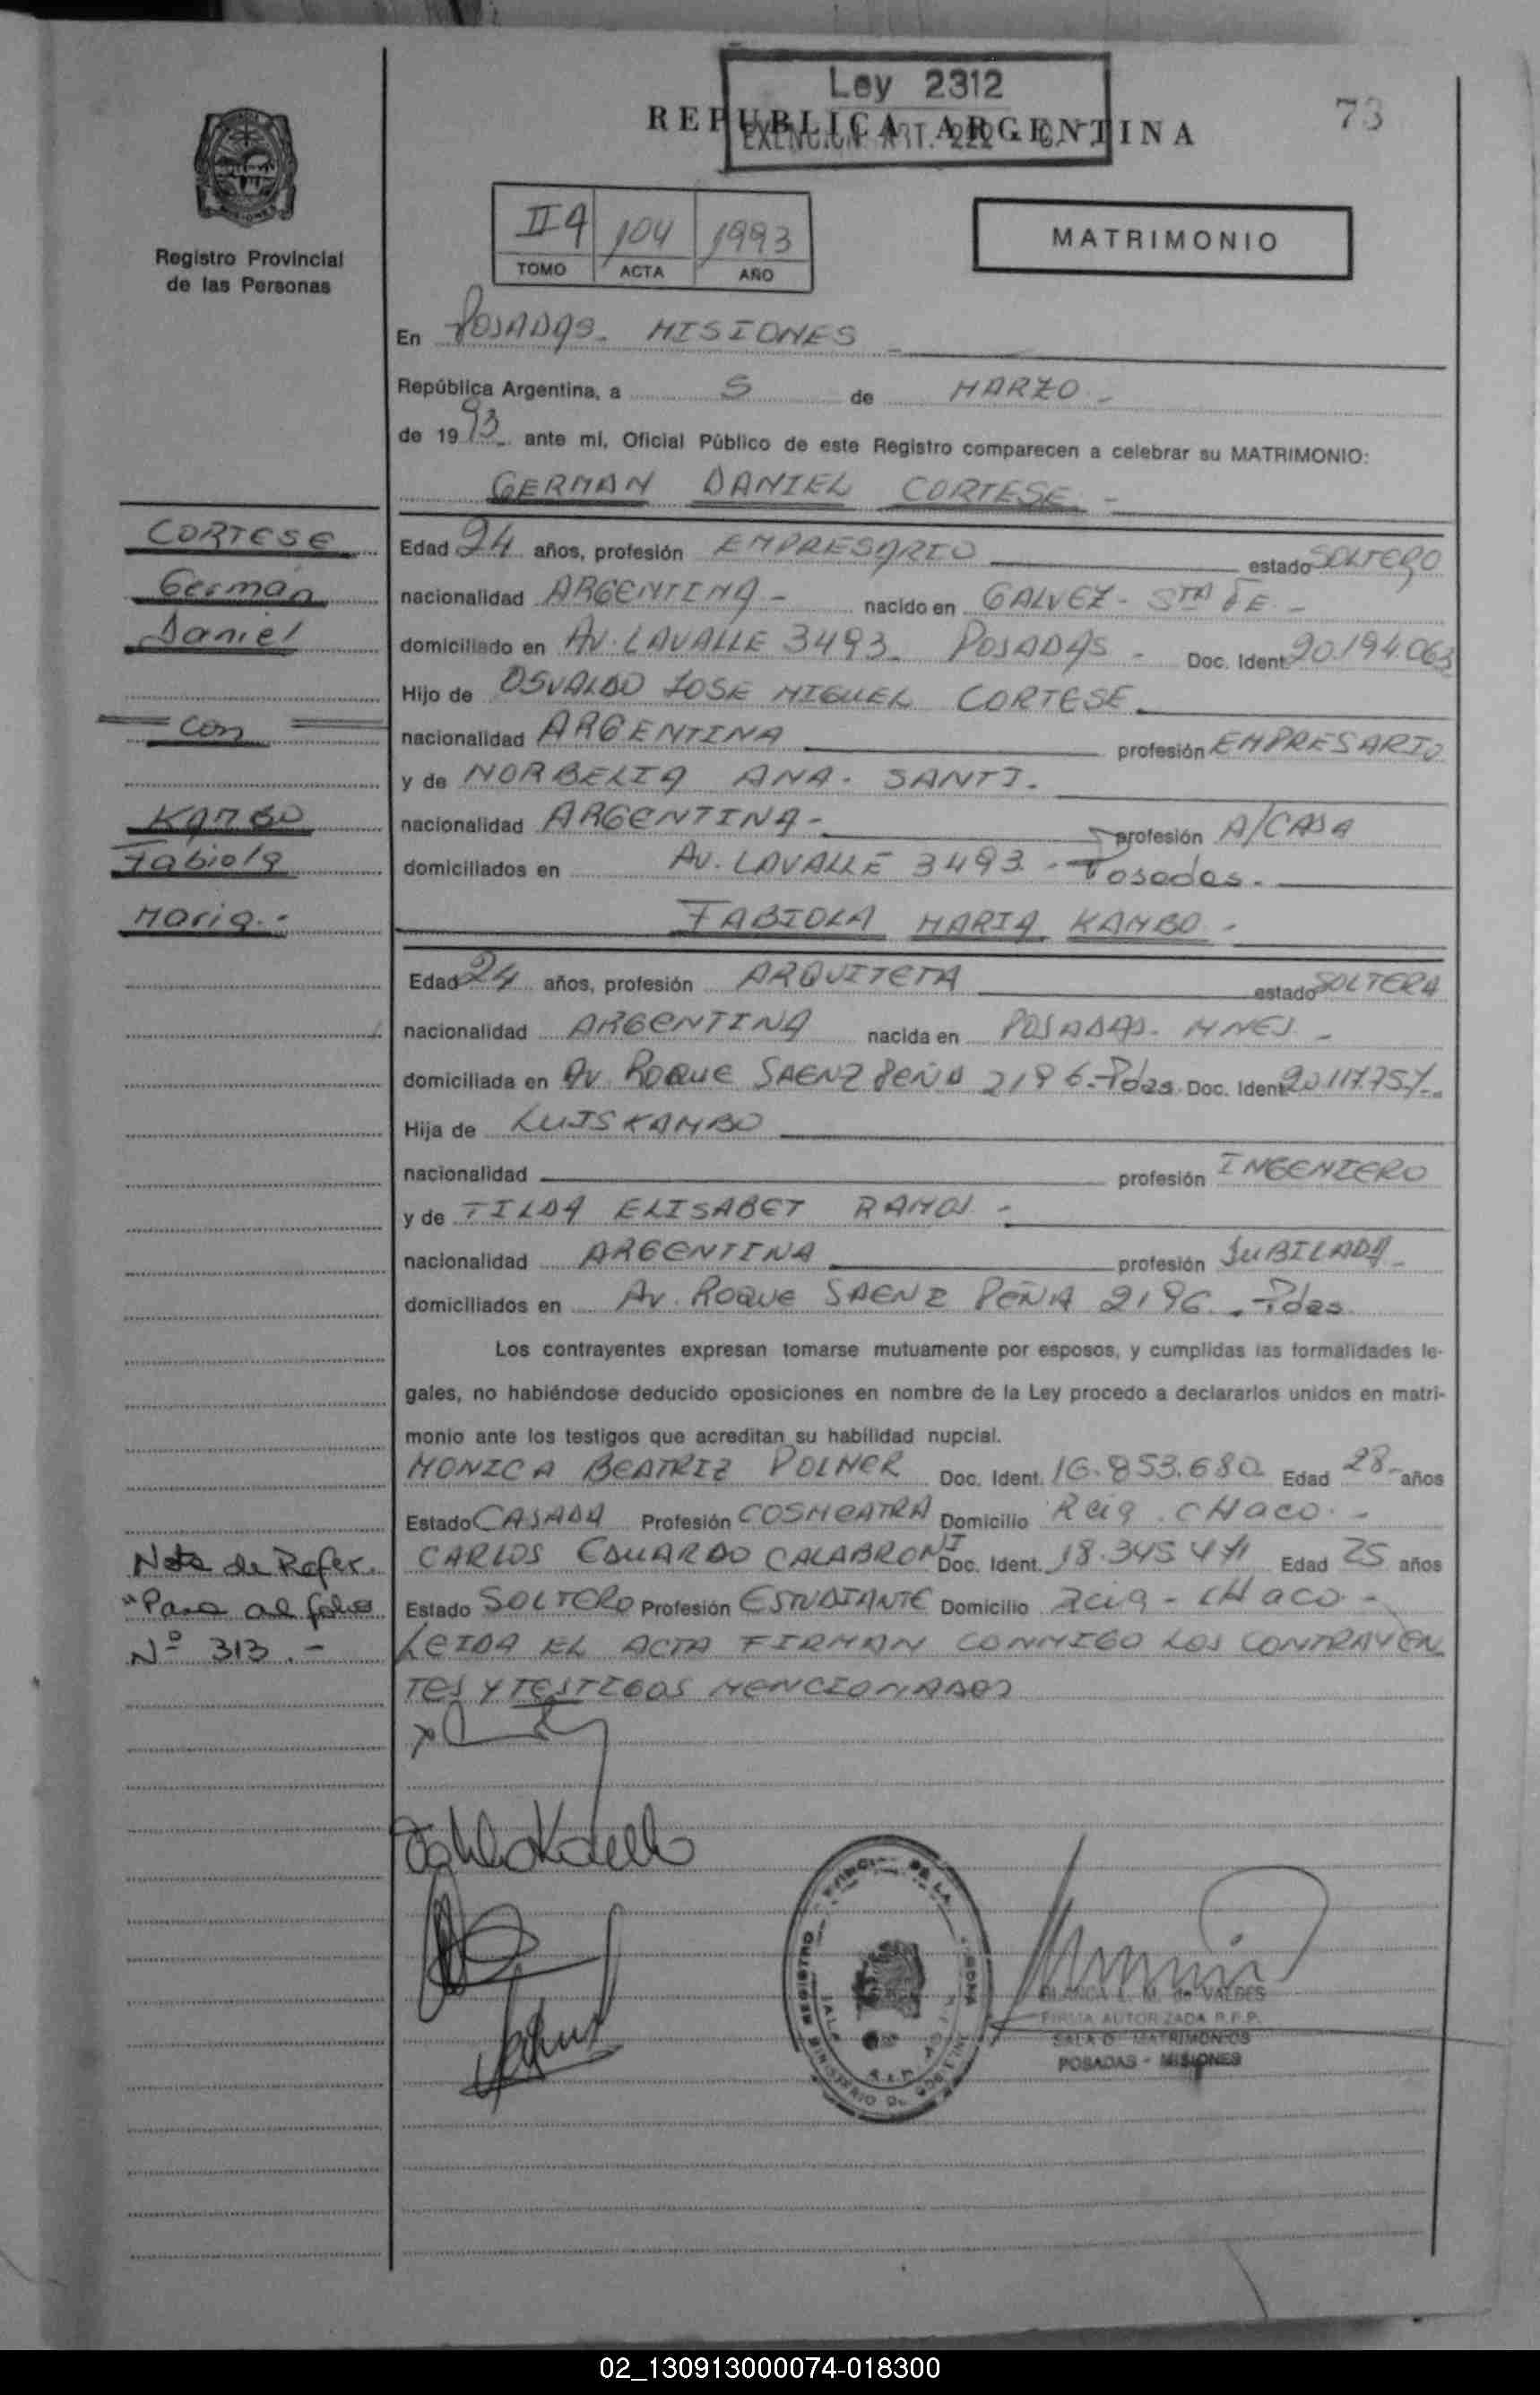 Ley 2312
REPUBLICA ARGENTINA
EXENCION ART. 222
73
Registro Provincial
de las Personas
II A 104 1993
TOMO ACTA AÑO
MATRIMONIO
En POSADAS - MISIONES
República Argentina, a 5 de MARZO -
de 1993 ante mí, Oficial Público de este Registro comparecen a celebrar su MATRIMONIO:
GERMAN DANIEL CORTESE -
CORTESE
German
Daniel
= con =
KAMBO
Fabiola
Maria.-
Edad 24 años, profesión EMPRESARIO estado SOLTERO
nacionalidad ARGENTINA - nacido en GALVEZ - STA FE -
domiciliado en AV. LAVALLE 3493 - POSADAS - Doc. Ident 20.194.063
Hijo de OSVALDO JOSE MIGUEL CORTESE
nacionalidad ARGENTINA profesión EMPRESARIO
y de NORBELIA ANA - SANTI -
nacionalidad ARGENTINA - profesión A/CASA
domiciliados en AV. LAVALLE 3493 - Posadas -
FABIOLA MARIA KAMBO -
Edad 24 años, profesión ARQUITETA estado SOLTERA
nacionalidad ARGENTINA nacida en POSADAS - MNES -
domiciliada en AV ROQUE SAENZ PEÑA 2196 - Pdas Doc. Ident 20.117.757
Hija de LUIS KAMBO
nacionalidad profesión INGENIERO
y de TILDA ELISABET RAMOS -
nacionalidad ARGENTINA profesión JUBILADA
domiciliados en AV. ROQUE SAENZ PEÑA 2196 - Pdas
Los contrayentes expresan tomarse mutuamente por esposos, y cumplidas las formalidades le-
gales, no habiéndose deducido oposiciones en nombre de la Ley procedo a declararlos unidos en matri-
monio ante los testigos que acreditan su habilidad nupcial.
MONICA BEATRIZ POLNER Doc. Ident. 16.853.680 Edad 28 - años
Estado CASADA Profesión COSMEATRA Domicilio Rcia. CHACO -
CARLOS EDUARDO CALABRONI Doc. Ident. 18.345 471 Edad 25 años
Estado SOLTERO Profesión ESTUDIANTE Domicilio Rcia - CHACO -
LEIDA EL ACTA FIRMAN CONMIGO LOS CONTRAYEN
TES Y TESTIGOS MENCIONADOS
Nota de Refer.
"Pasa al folio
Nº 313.-
REGISTRO PROVINCIAL DE LAS
MINISTERIO DE
BLANCA A. M. de VALDES
FIRMA AUTORIZADA R.P.P.
SALA DE MATRIMONIOS
POSADAS - MISIONES
02_130913000074-018300